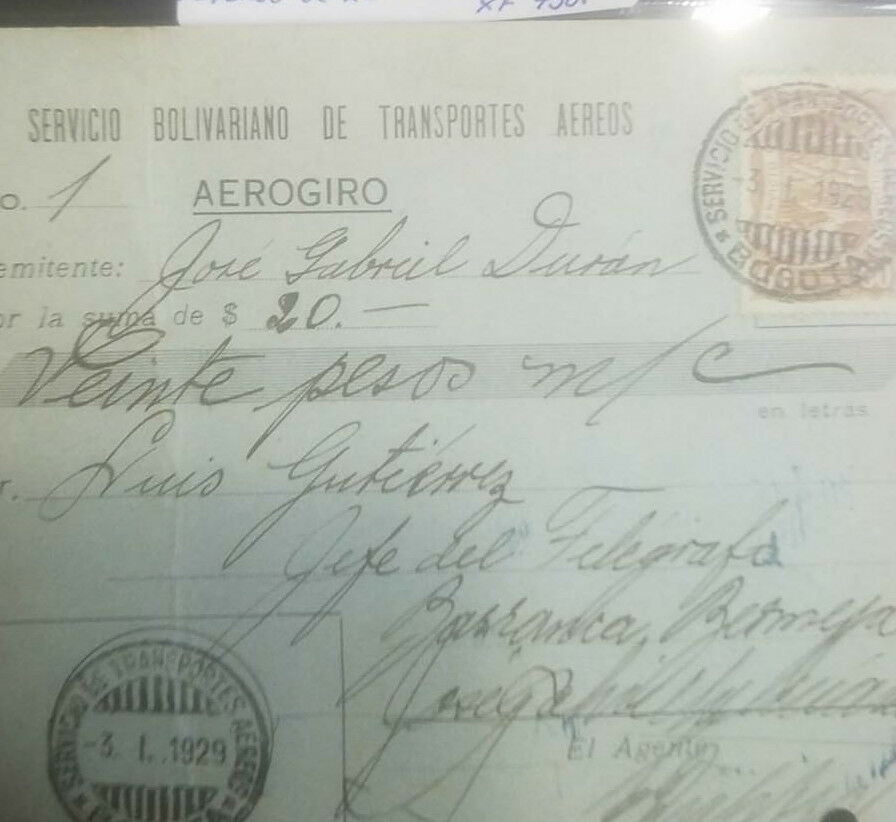 XF
SERVICIO BOLIVARIANO DE TRANSPORTES AEREOS
SERVICIO DE TRANSPORTES
-3 I. 1929
BOGOTA
o. 1 AEROGIRO
emitente: José Gabriel Durán
or la suma de $ 20.—
Veinte pesos m/c
en letras
r. Luis Gutiérrez
Jefe del Telégrafo
Barranca Bermeja
SERVICIO DE TRANSPORTES AEREOS
-3. I. 1929
El Agente,